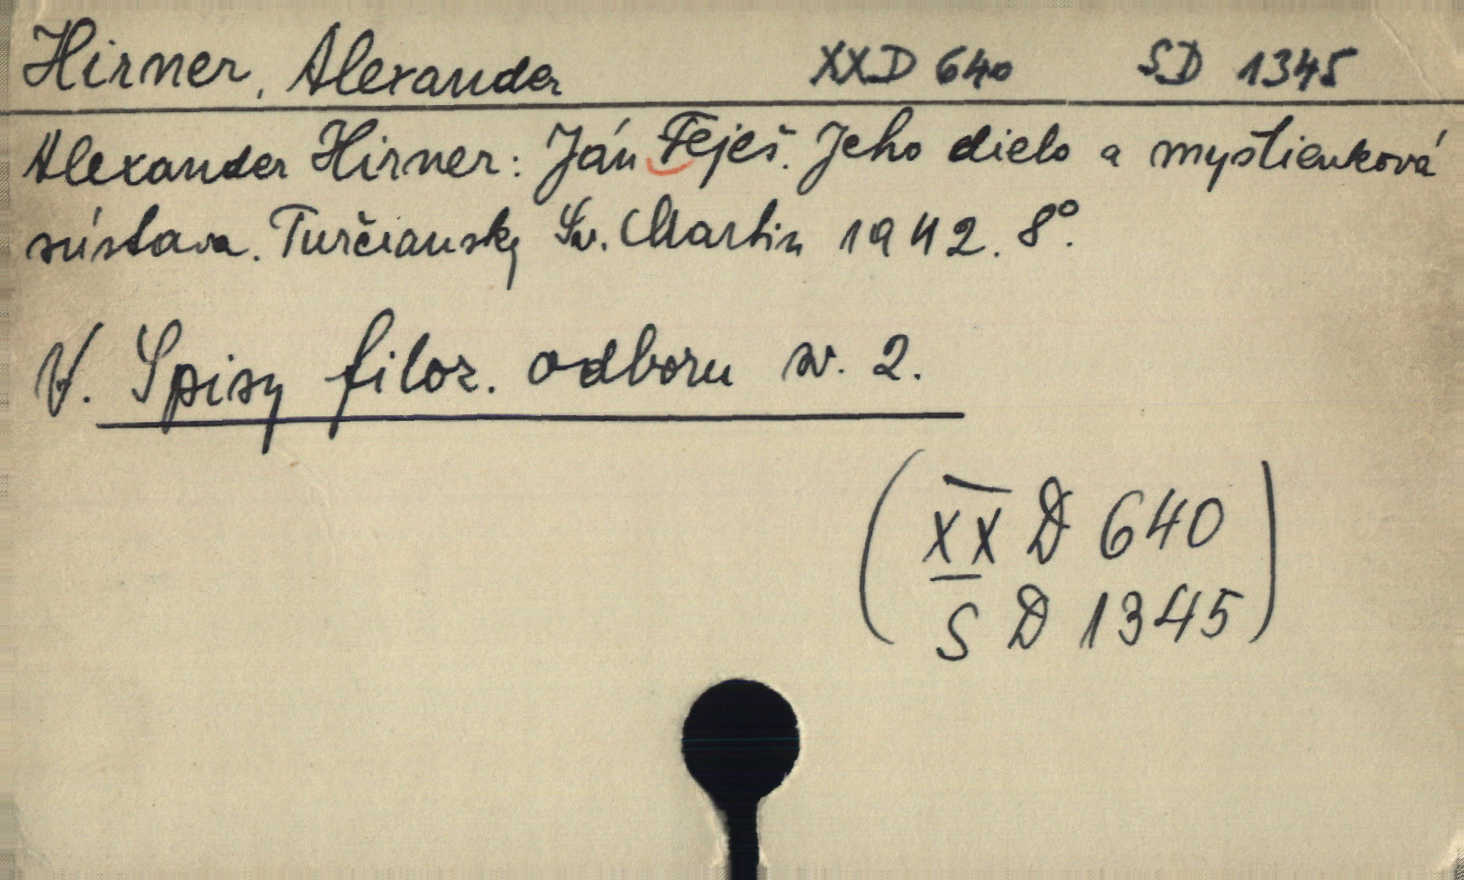 Hirner, Alexander XXD 640 SD 1345
Alexander Hirner: Ján Feješ. Jeho dielo a myslienková
sústava. Turčiansky Sv. Martin 1942. 8°.
V. Spisy filoz. odboru sv. 2.
(XX D 640
S D 1345)